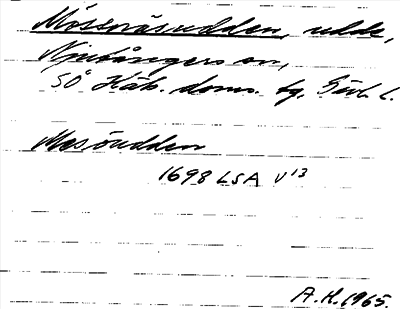 Mössnäsudden, udde,
Njutångers sn,
SÖ Häls. doms. tg, Gävl. l.
Mosöudden
1698 LSA V¹³
A.K. 1965.